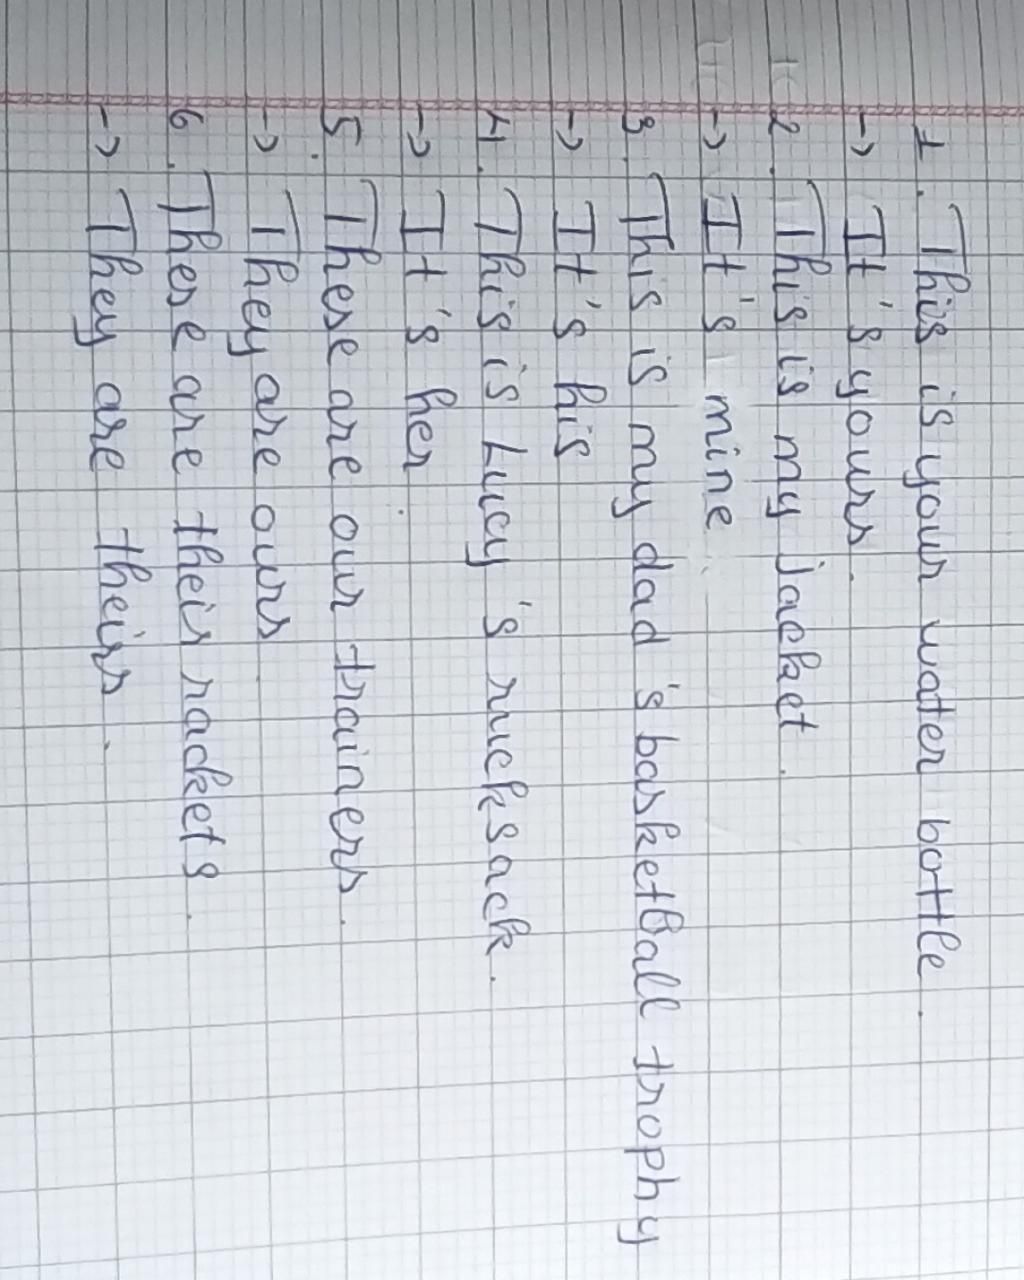 1. This is your water bottle.
-> It's yours.
2. This is my jacket.
-> It's mine.
3. This is my dad's basketball trophy
-> It's his
4. This is Lucy's rucksack.
-> It's her.
5. These are our trainers.
-> They are ours.
6. These are their rackets.
-> They are theirs.